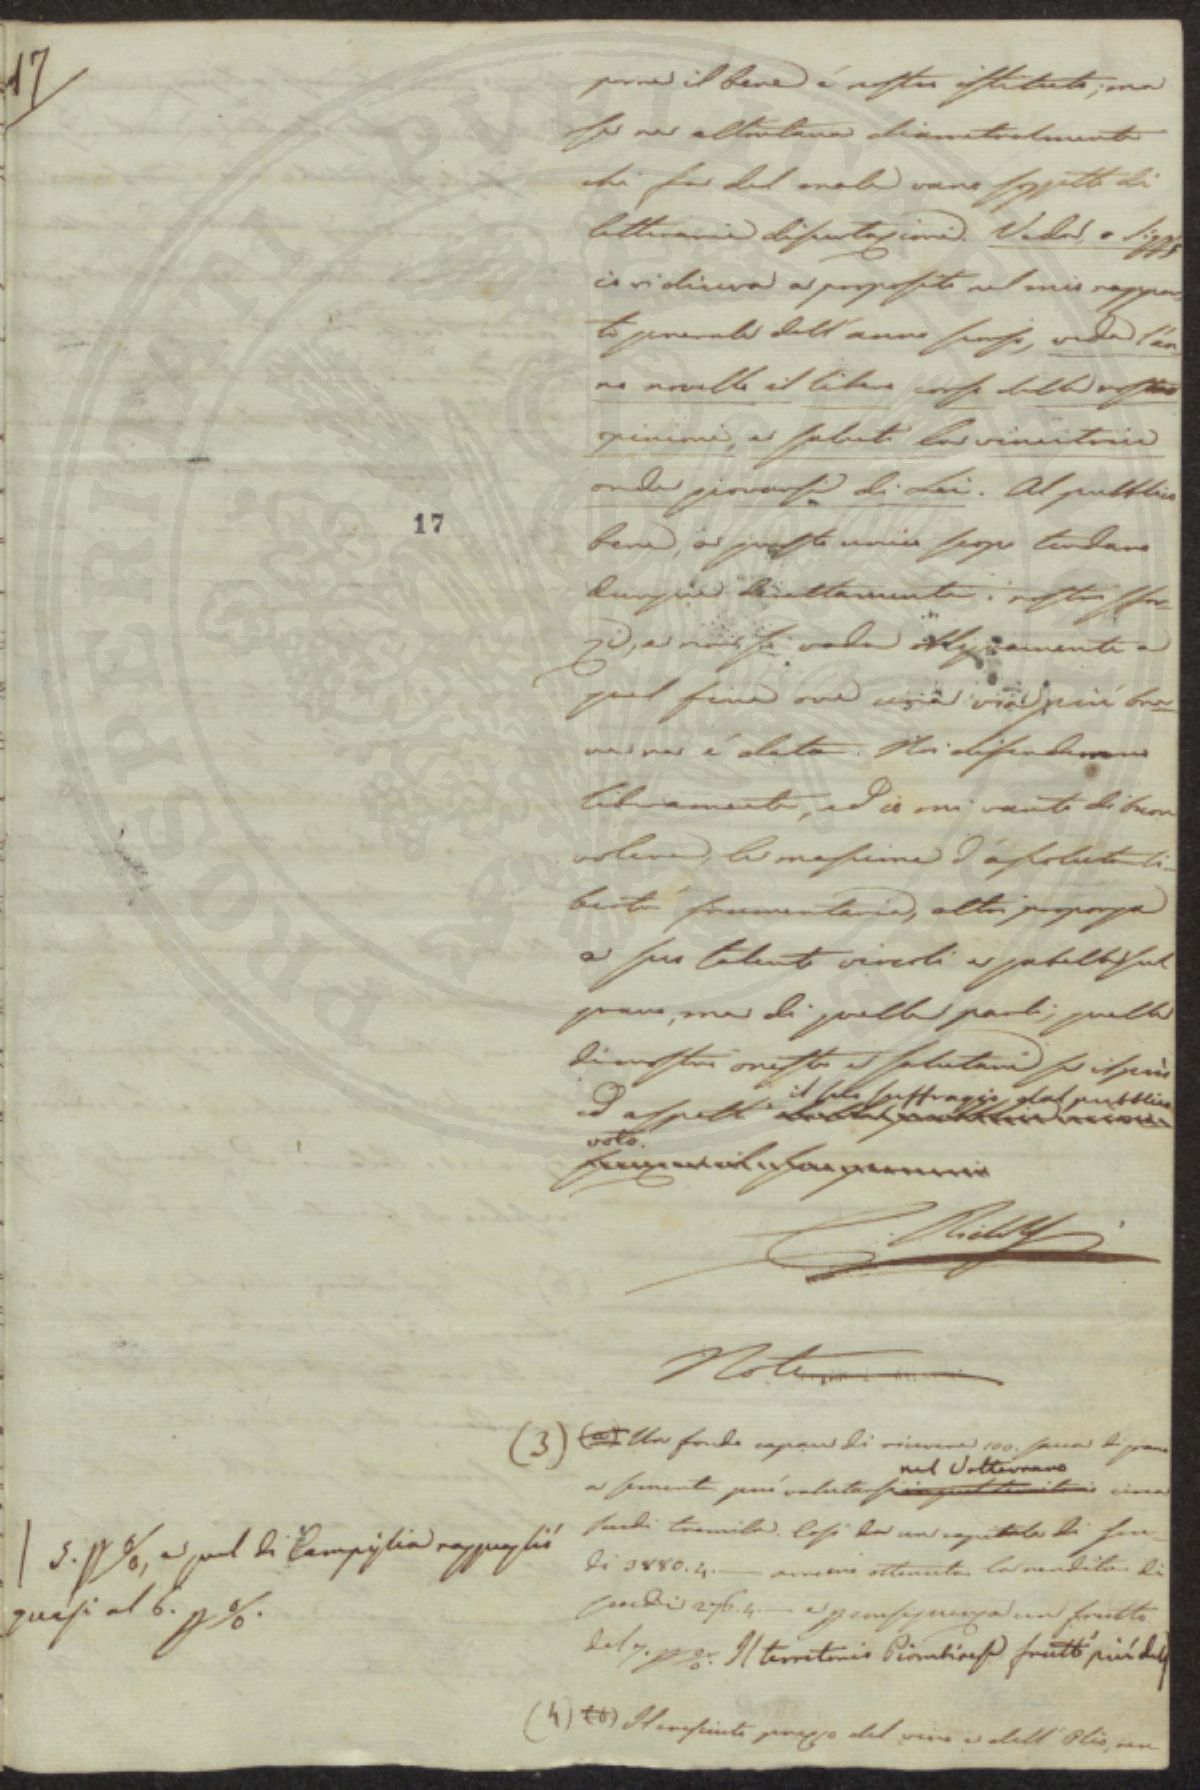 17
porre il bene è nostro istituto; ma
se ne allontana diametralmente
chi fa del male vano soggetto di
letterarie disputazioni. Veda, o Sigg.i
io vi diceva a proposito nel mio rappor
to generale dell'anno scorso, veda l'an
no novello il libero corso delle vostre
opinioni, e saluti la vincitrice
onde giovarsi di Lei. Al pubblico
bene, a questo unico scopo tendano
dunque direttamente i nostri sfor-
zi, e noi si vada
quel fine ove una via più bre-
ve ne è data. Noi
liberamente, ed io mi vanto di buon
volere, le massime d'assoluta li-
bertà frumentaria, altri proponga
a suo talento vincoli e gabelle sul
grano, ma di quelle parli, quelle
dimostri oneste e salutari se il può
ed aspetti il suo suffragio dal pubblico
voto.
C. Ridolfi
17
Note
(3) (a) Un fondo capace di ricevere 100. sacca di grano
a sementa può valutarsi nel Volterrano circa
scudi tremila. Così da un capitale di scu-
di 3880.4.— avremo ottenuta la rendita di
scudi 276.4.— e p conseguenza un frutto
del 7. p %. Il territorio Piombinese fruttò più del
| 5. p %, e quel di Campiglia ragguagliò
quasi al 6. p %.
(4) (b) Il crescente prezzo del vino e dell'Olio, ren